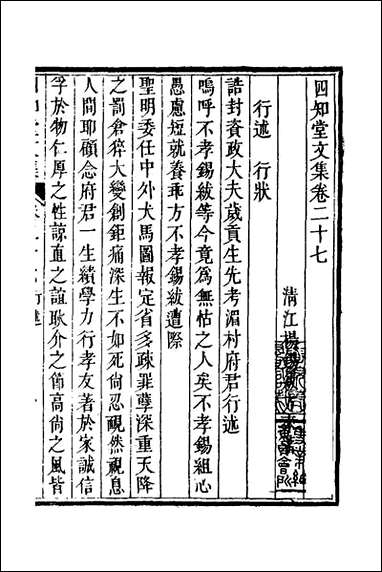 四知堂文集卷二十七
清江楊錫紱
行述　行狀
誥封資政大夫歲貢生先考湄村府君行述
嗚呼不孝錫紱等今竟為無怙之人矣不孝錫組心
愚慮短就養乖方不孝錫紱遭際
聖明委任中外犬馬圖報定省多疎罪孽深重天降
之罰倉猝大變創鉅痛深生不如死尙忍覥然視息
人間耶顧念府君一生績學力行孝友著於家誠信
孚於物仁厚之性諒直之誼耿介之節高尙之風皆